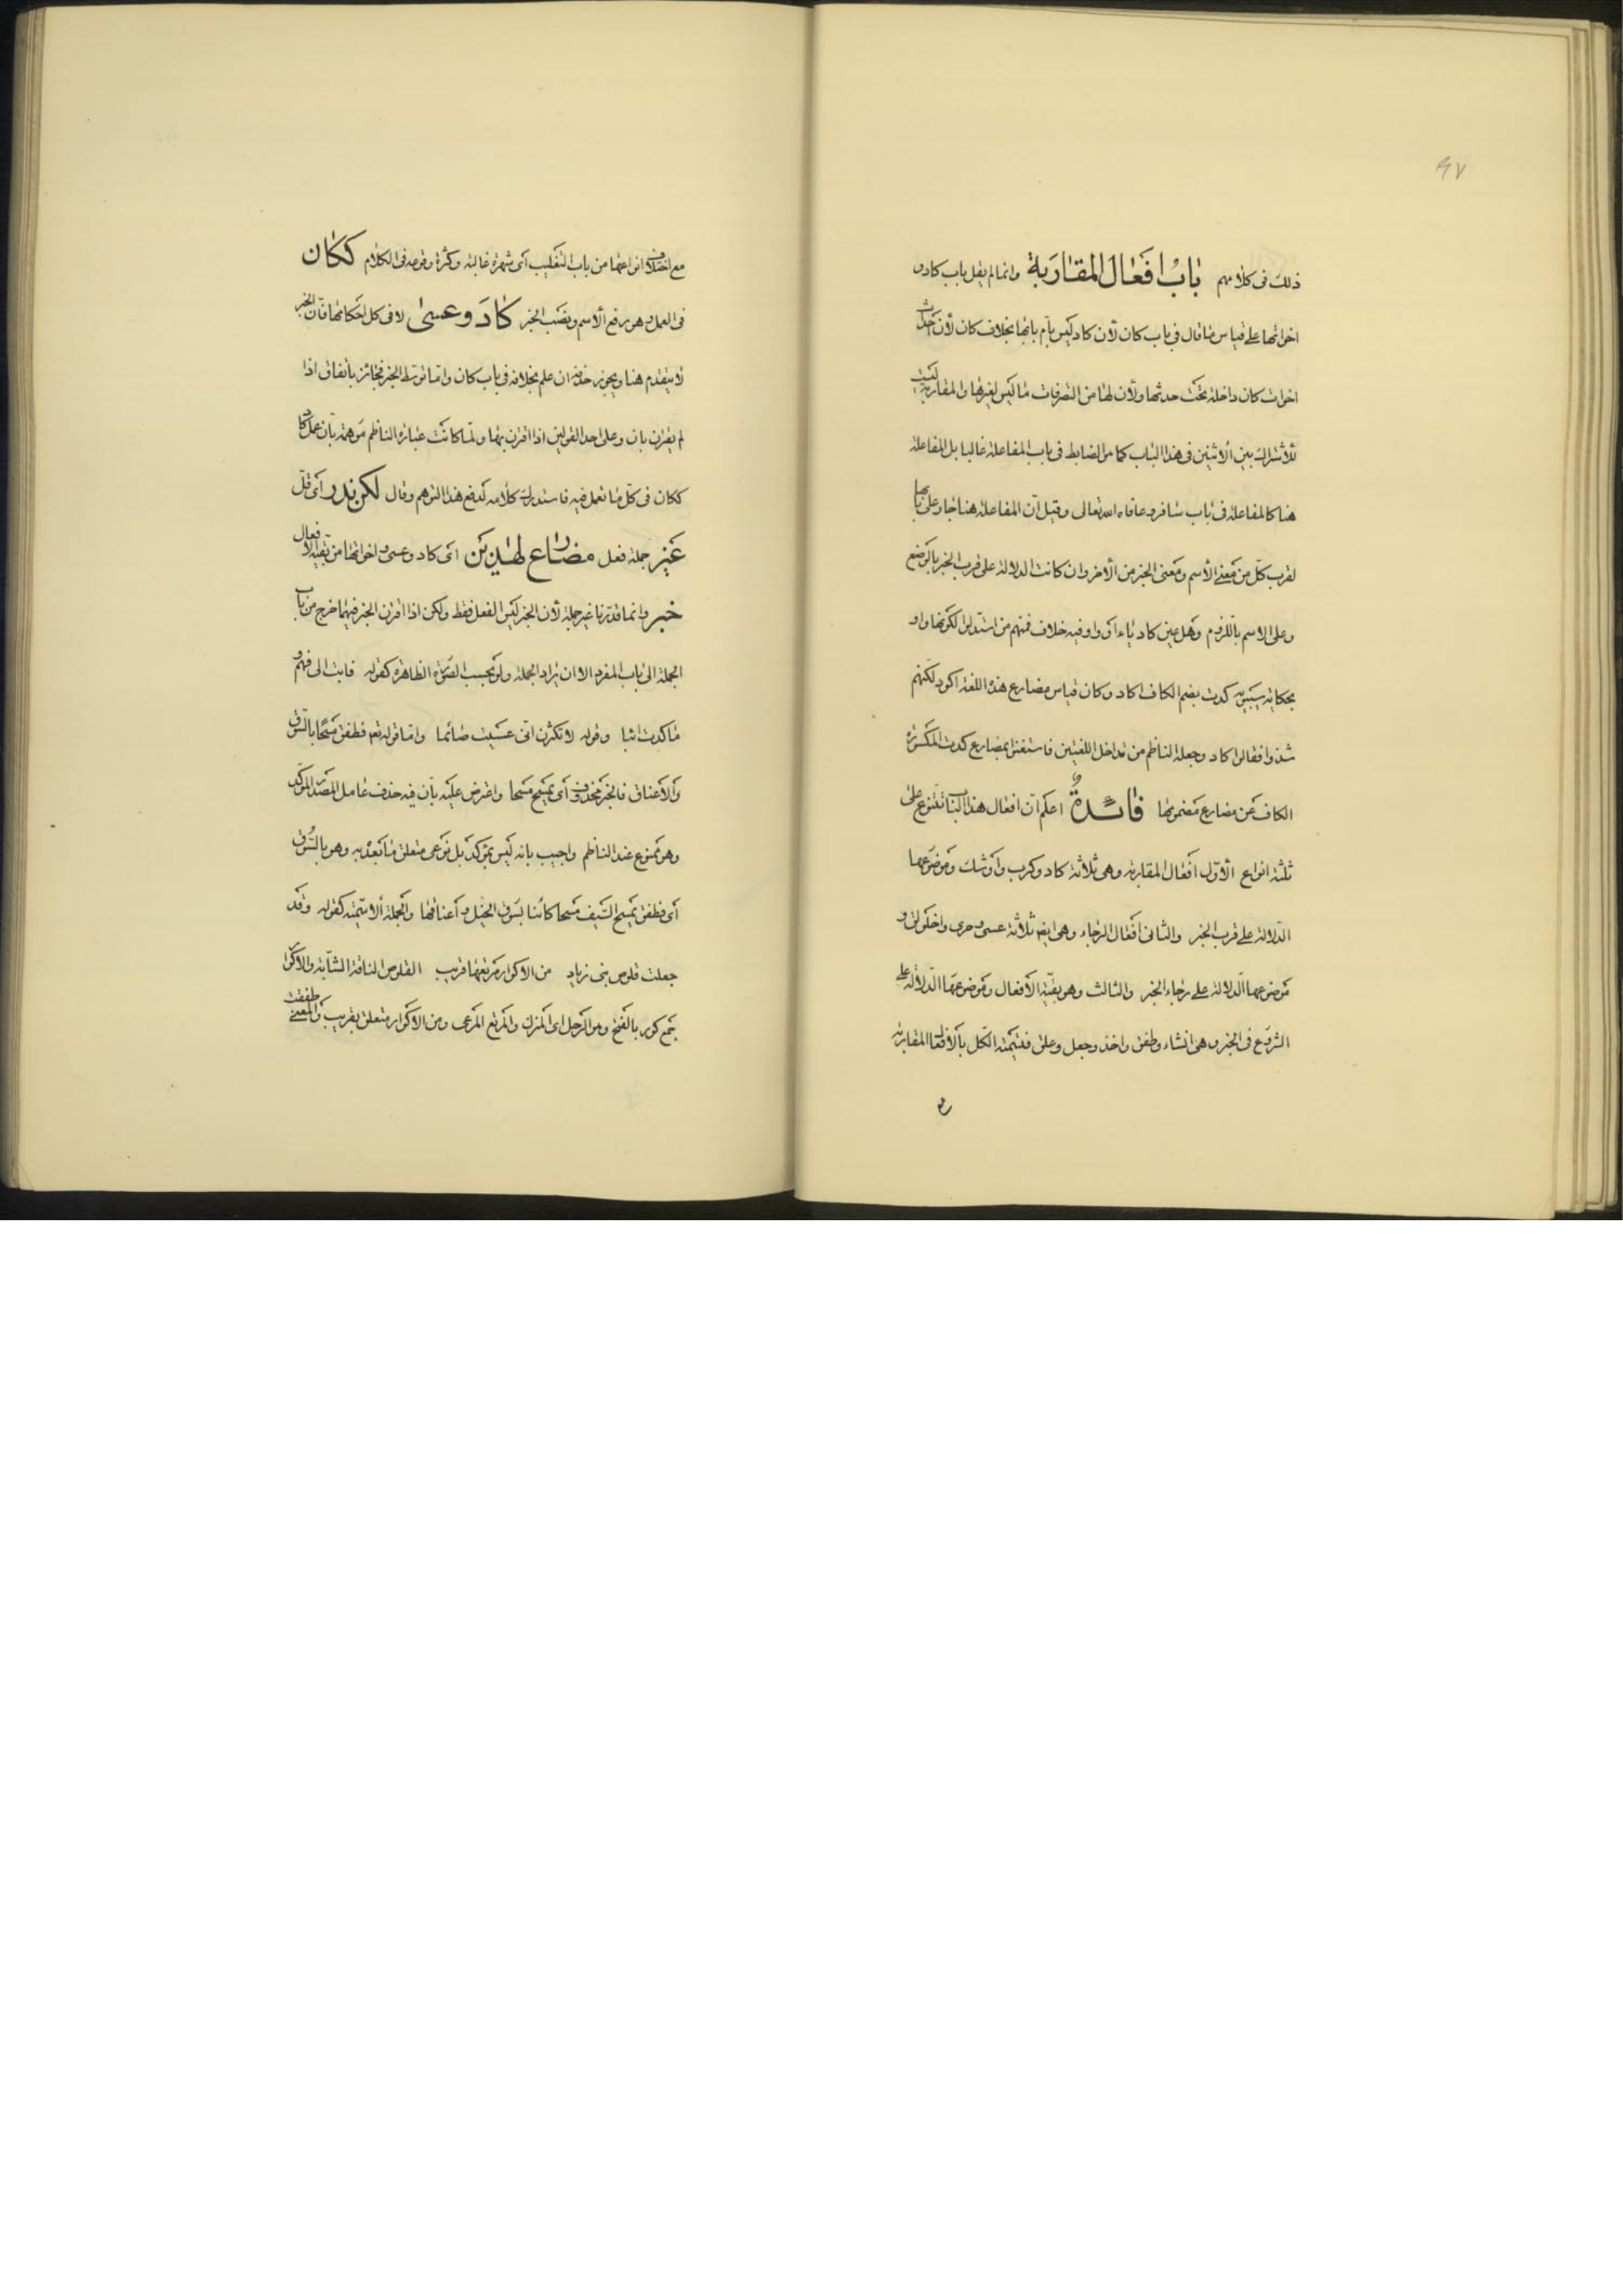 ٩٧
ذلك فى كلامهم بابُ افَعالَ المقارَبة وانما لم يقل باب كاد و
اخواتها على قياس ما قال فى باب كان لأن كاد ليس بأم بابها بخلاف كان لأن احداث
اخوات كان داخلة تحت حدثها ولأن لها من التصرفات ما ليس لغيرها والمقاربة ليست
للاشتراك بين الاثنين فى هذا الباب كما هو الضابط فى باب المفاعلة غالبا بل المفاعلة
هنا كالمفاعلة فى باب سافر وعافاه الله تعالى وقيل انّ المفاعلة هنا جاء على بابها
لقرب كلّ من معنى الأسم ومعنى الخبر من الأخر وان كانت الدلالة على قرب الخبر بالوضع
وعلى الاسم باللزوم وهل عين كاد ياء او واو فيه خلاف فمنهم من استدل لكونها واو
بحكاية سيبويه كدت بضم الكاف اكاد وكان قياس مضارع هذه اللغة اكود لكنهم
شذوا فقالوا اكاد وجعله الناظم من تداخل اللغتين فاستغنوا بمضارع كدت المكسورة
الكاف عن مضارع مضمومها فائدةٌ اعلم انّ افعال هذا الباب تتنوع على
ثلثة انواع الأوّل افعال المقاربة وهى ثلاثة كاد وكرب واوشك وموضوعها
الدّلالة على قرب الخبر والثانى افعال الرجاء وهى ايضا ثلاثة عسى وحرى واخلولق و
موضوعها الدّلالة على رجاء الخبر والثالث وهو بقيّة الأفعال وموضوعها الدّلالة على
الشروع فى الخبر وهى انشاء وطفق واخذ وجعل وعلق فتسمية الكل بأفعال المقاربة
مع
مع اختلاف انواعها من باب التغليب اى شهرة غالبة وكثرة وقوعه فى الكلام ككان
فى العمل وهو رفع الأسم ونصب الخبر كادَ وعسىٰ لا فى كل احكامها فانّ الخبر
لا يتقدم هنا ويجوز حذفه ان علم بخلافه فى باب كان وامّا توسّط الخبر فجائز باتفاق اذا
لم يقترن بان وعلى احد القولين اذا اقترن بها ولمّا كانت عبارة الناظم موهمة بأن عمل كاد
ككان فى كلّ ما تعمل فيه فاستدرك كلامه لدفع هذا التوهم وقال لكن ندر اى قلّ
غير جملة فعل مضارع لهذين اى كاد وعسى واخواتها من بقيّة الأفعال
خبر وانما قدّرنا غير جملة لأن الخبر ليس الفعل فقط ولكن اذا اقترن الخبر فيهما خرج من باب
الجملة الى باب المفرد الا ان يراد الجملة ولو بحسب الصورة الظاهرة كقوله فابت الى فهم و
ما كدت ائبا وقوله لا تكثرن انى عسيت صائما وامّا قوله تعه فطفق مسحًا بالسّوق
والأعناق فالخبر محذوف اى يمسح مسحا واعترض عليه بأن فيه حذف عامل المصدر المؤكّد
وهو ممنوع عند الناظم واجيب بانه ليس بمؤكد بل نوعى متعلق ما بعده به وهو بالسُّوق
اى فطفق يمسح السّيف مسحا كائنا بسوق الخيل واعناقها والجملة الاسميّة كقوله وقد
جعلت قلوص بنى زياد من الاكوار مرتعها قريب القلوص الناقة الشّابة والاكوار
جمع كور بالفتح وهو الرحل اى المنزل والمرتع المرعى ومن الاكوار متعلق بقريب والمعنى طفقت